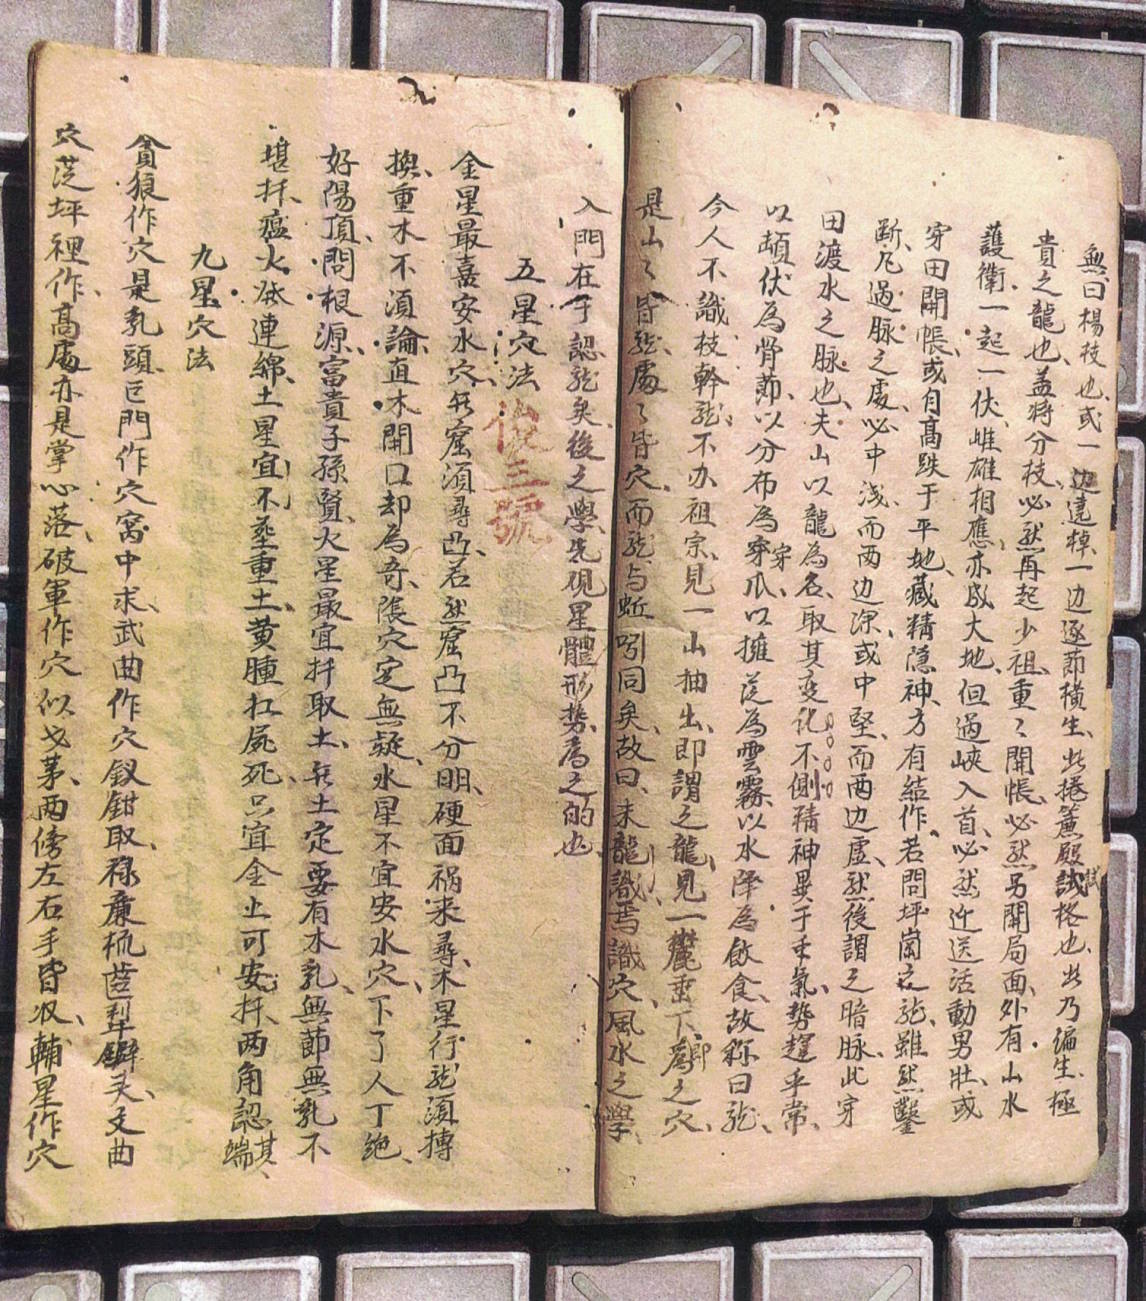 無曰楊枝也或一边遠棹一边逐節橫生此捲簾殿試格也此乃偏生極
貴之龍也蓋将分枝必然再起少祖重〻開帳必然另開局面外有山水
護衛一起一伏雌雄相應亦成大地但過峽入首必然近送活動男壯或
穿田開帳或自高跌于平地藏精隱神方有結作若問坪崗之龍雖然鑿
断凡過脉之處必中浅而两边深或中堅而两边虛然後謂之暗脉此穿
田渡水之脉也夫山以龍為名取其变化不側精神異于禾氣勢趕乎常
以頓伏為骨節以分布為穿爪以擁从為雲霧以水降為飲食故称曰龙
今人不識枝幹龙不办祖宗見一山抽出即謂之龍見一麓垂下即為之穴
是山〻皆龙處〻皆穴而龙与蚯蚓同矣故曰未龍識焉識穴風水之學
入門在乎認龙矣後之學先視星體形勢為之的也
五星穴法
俊三號
金星最嘉安水穴無窟須尋凸若然窟凸不分明硬面祸来尋木星行龙須摶
換重木不須論直木開口却為奇張穴定無疑水星不宜安水穴下了人丁绝
好陽頂問根源富貴子孫賢火星最宜扦取土無土定要有木乳無節無乳不
堪扦瘟火㳂連綿土星宜不葬重土黄腫扛屍死只宜金止可安扦两角認其端
九星穴法
貪狼作穴是乳頭巨門作穴窩中求武曲作穴釵鉗取禄㢘梳齒犁鐴头文曲
穴从坪裡作高處亦是掌心落破軍作穴似戈茅两傍左右手皆収輔星作穴